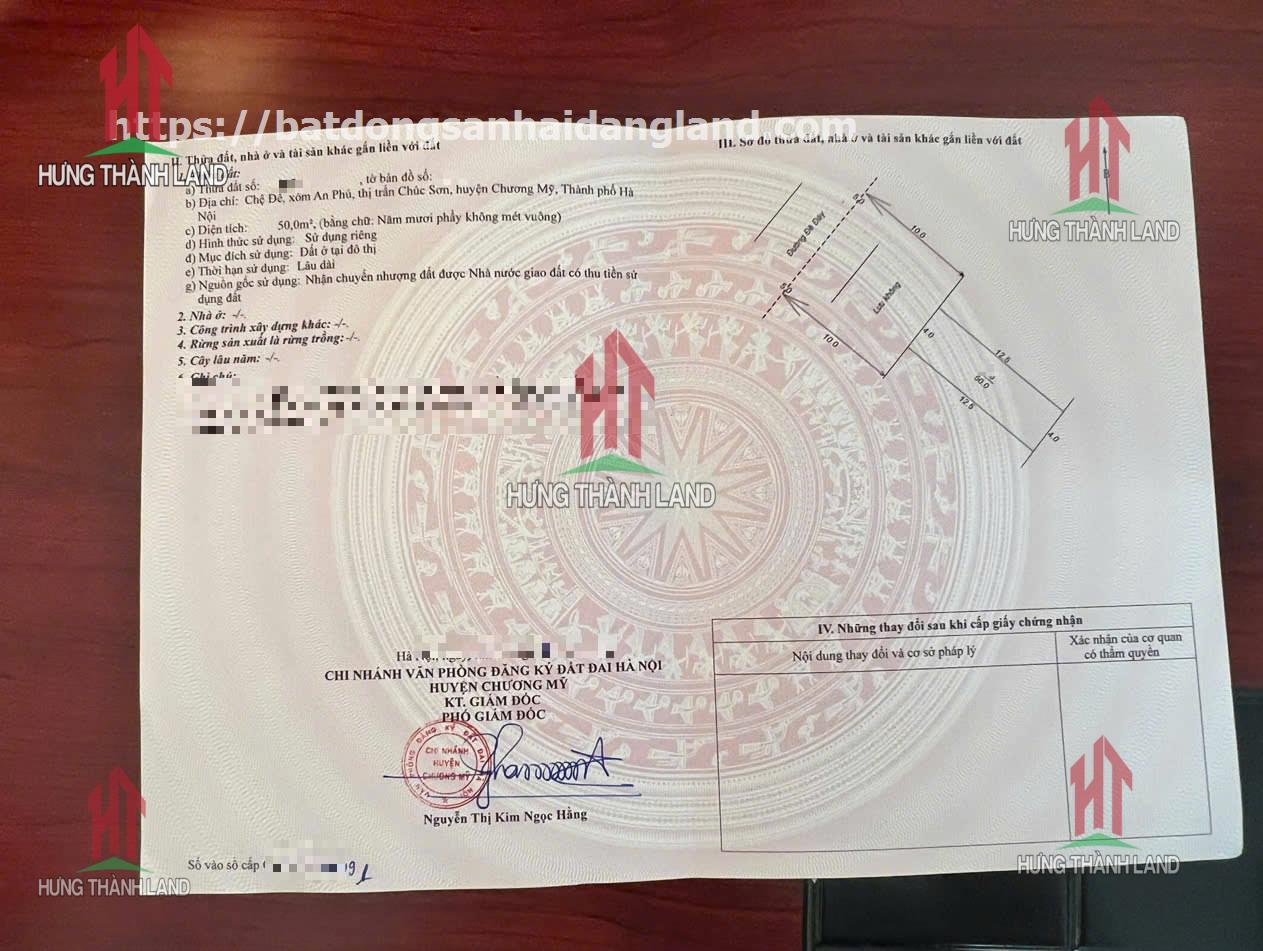 https://batdongsanhaidangland.com
HƯNG THÀNH LAND
II. Thửa đất, nhà ở và tài sản khác gắn liền với đất
a) Thửa đất số: , tờ bản đồ số:
b) Địa chỉ: Chệ Đê, xóm An Phú, thị trấn Chúc Sơn, huyện Chương Mỹ, Thành phố Hà
Nội
c) Diện tích: 50,0m², (bằng chữ: Năm mươi phẩy không mét vuông)
d) Hình thức sử dụng: Sử dụng riêng
đ) Mục đích sử dụng: Đất ở tại đô thị
e) Thời hạn sử dụng: Lâu dài
g) Nguồn gốc sử dụng: Nhận chuyển nhượng đất được Nhà nước giao đất có thu tiền sử
dụng đất
2. Nhà ở: -/-.
3. Công trình xây dựng khác: -/-.
4. Rừng sản xuất là rừng trồng: -/-.
5. Cây lâu năm: -/-.
Ghi chú:
HƯNG THÀNH LAND
CHI NHÁNH VĂN PHÒNG ĐĂNG KÝ ĐẤT ĐAI HÀ NỘI
HUYỆN CHƯƠNG MỸ
KT. GIÁM ĐỐC
PHÓ GIÁM ĐỐC
VĂN PHÒNG ĐĂNG KÝ ĐẤT ĐAI HÀ NỘI
CHI NHÁNH
HUYỆN
CHƯƠNG MỸ
Nguyễn Thị Kim Ngọc Hằng
Số vào sổ cấp
HƯNG THÀNH LAND
III. Sơ đồ thửa đất, nhà ở và tài sản khác gắn liền với đất
B
HƯNG THÀNH LAND
Đường Đê Đáy
10.0
Lưu không
10.0
4.0
12.5
50.0
12.5
4.0
IV. Những thay đổi sau khi cấp giấy chứng nhận
Nội dung thay đổi và cơ sở pháp lý
Xác nhận của cơ quan
có thẩm quyền
HƯNG THÀNH LAND